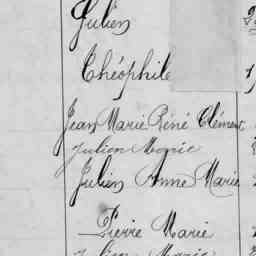 Julien
Théophile
Jean Marie Réné Clément
Julien Marie
Julien Anne Marie
Pierre Marie
Julien Marie